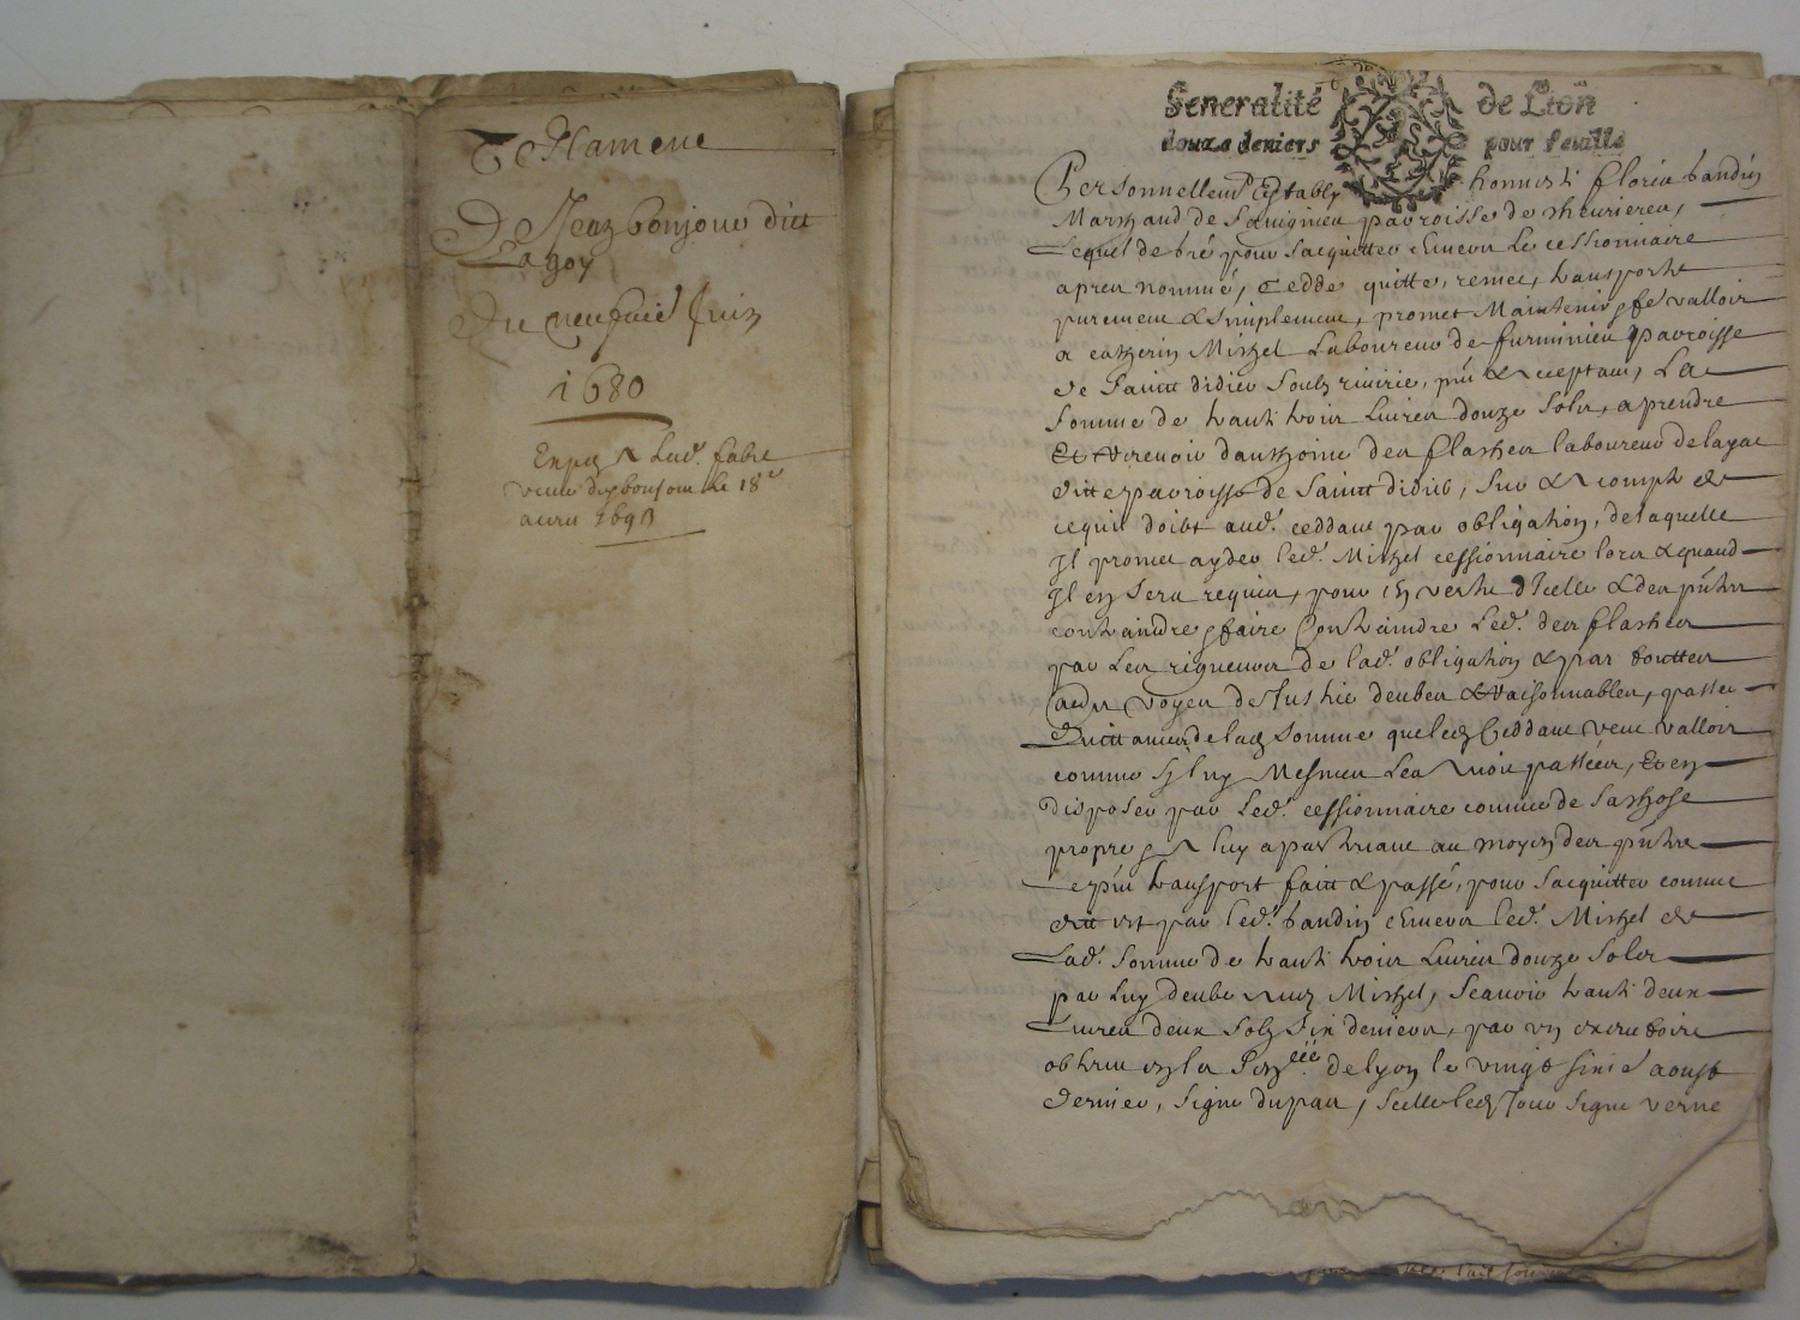 Testament
De Jean bonjour dict
Lagoy
Du neufvie Juin
1680
Expe a lad. fabre
veuve dud bonjour le 18e
avril 1693
Generalité de Lion
douze deniers pour feuille
Personnellemt Estably honneste floris baudin
Marchand de parroisse de
Lequel de gré pour sacquitter envers Le cessionnaire
apres nommé, Cedde quitte, remet, transporte
purement & simplement, promet Maintenir & fe valloir
a Michel Laboureur de furminieu parroisse
de Sainct didier soubz riverie, pnt & acceptant, La
somme de trante trois Livres douze solz, a prendre
Et recevoir danthoine des flaches laboureur de
ditte parroisse de Sainct didier, sur & a compte de
ce quil doibt aud. ceddant par obligation, de laquelle
Il promet ayder led. Michel cessionnaire lors & quand
Il en sera requis, pour en vertu dIcelle & des pntes
contraindre & faire Contraindre Led. des flaches
par Les rigueurs de lad. obligation & par touttes
voyes de Justice deubes & raisonnables, passer
Quittances de lad somme que led Ceddant veut valloir
comme sy luy Mesmes Les avoit passées, Et en
disposer par Led. cessionnaire comme de sa chose
propre & a luy apartenant au moyen des pntes
pnt transport faict & passé, pour sacquitter comme
dict est par led. baudin envers led. Michel de
Lad. somme de trante trois Livres douze solz
par Luy deube aud Michel, scavoir trante deux
Livres deux solz six deniers, par un executoire
obtenu en la de lyon le vingt aoust
dernier, signé dupas, scellé led Jour signé verne